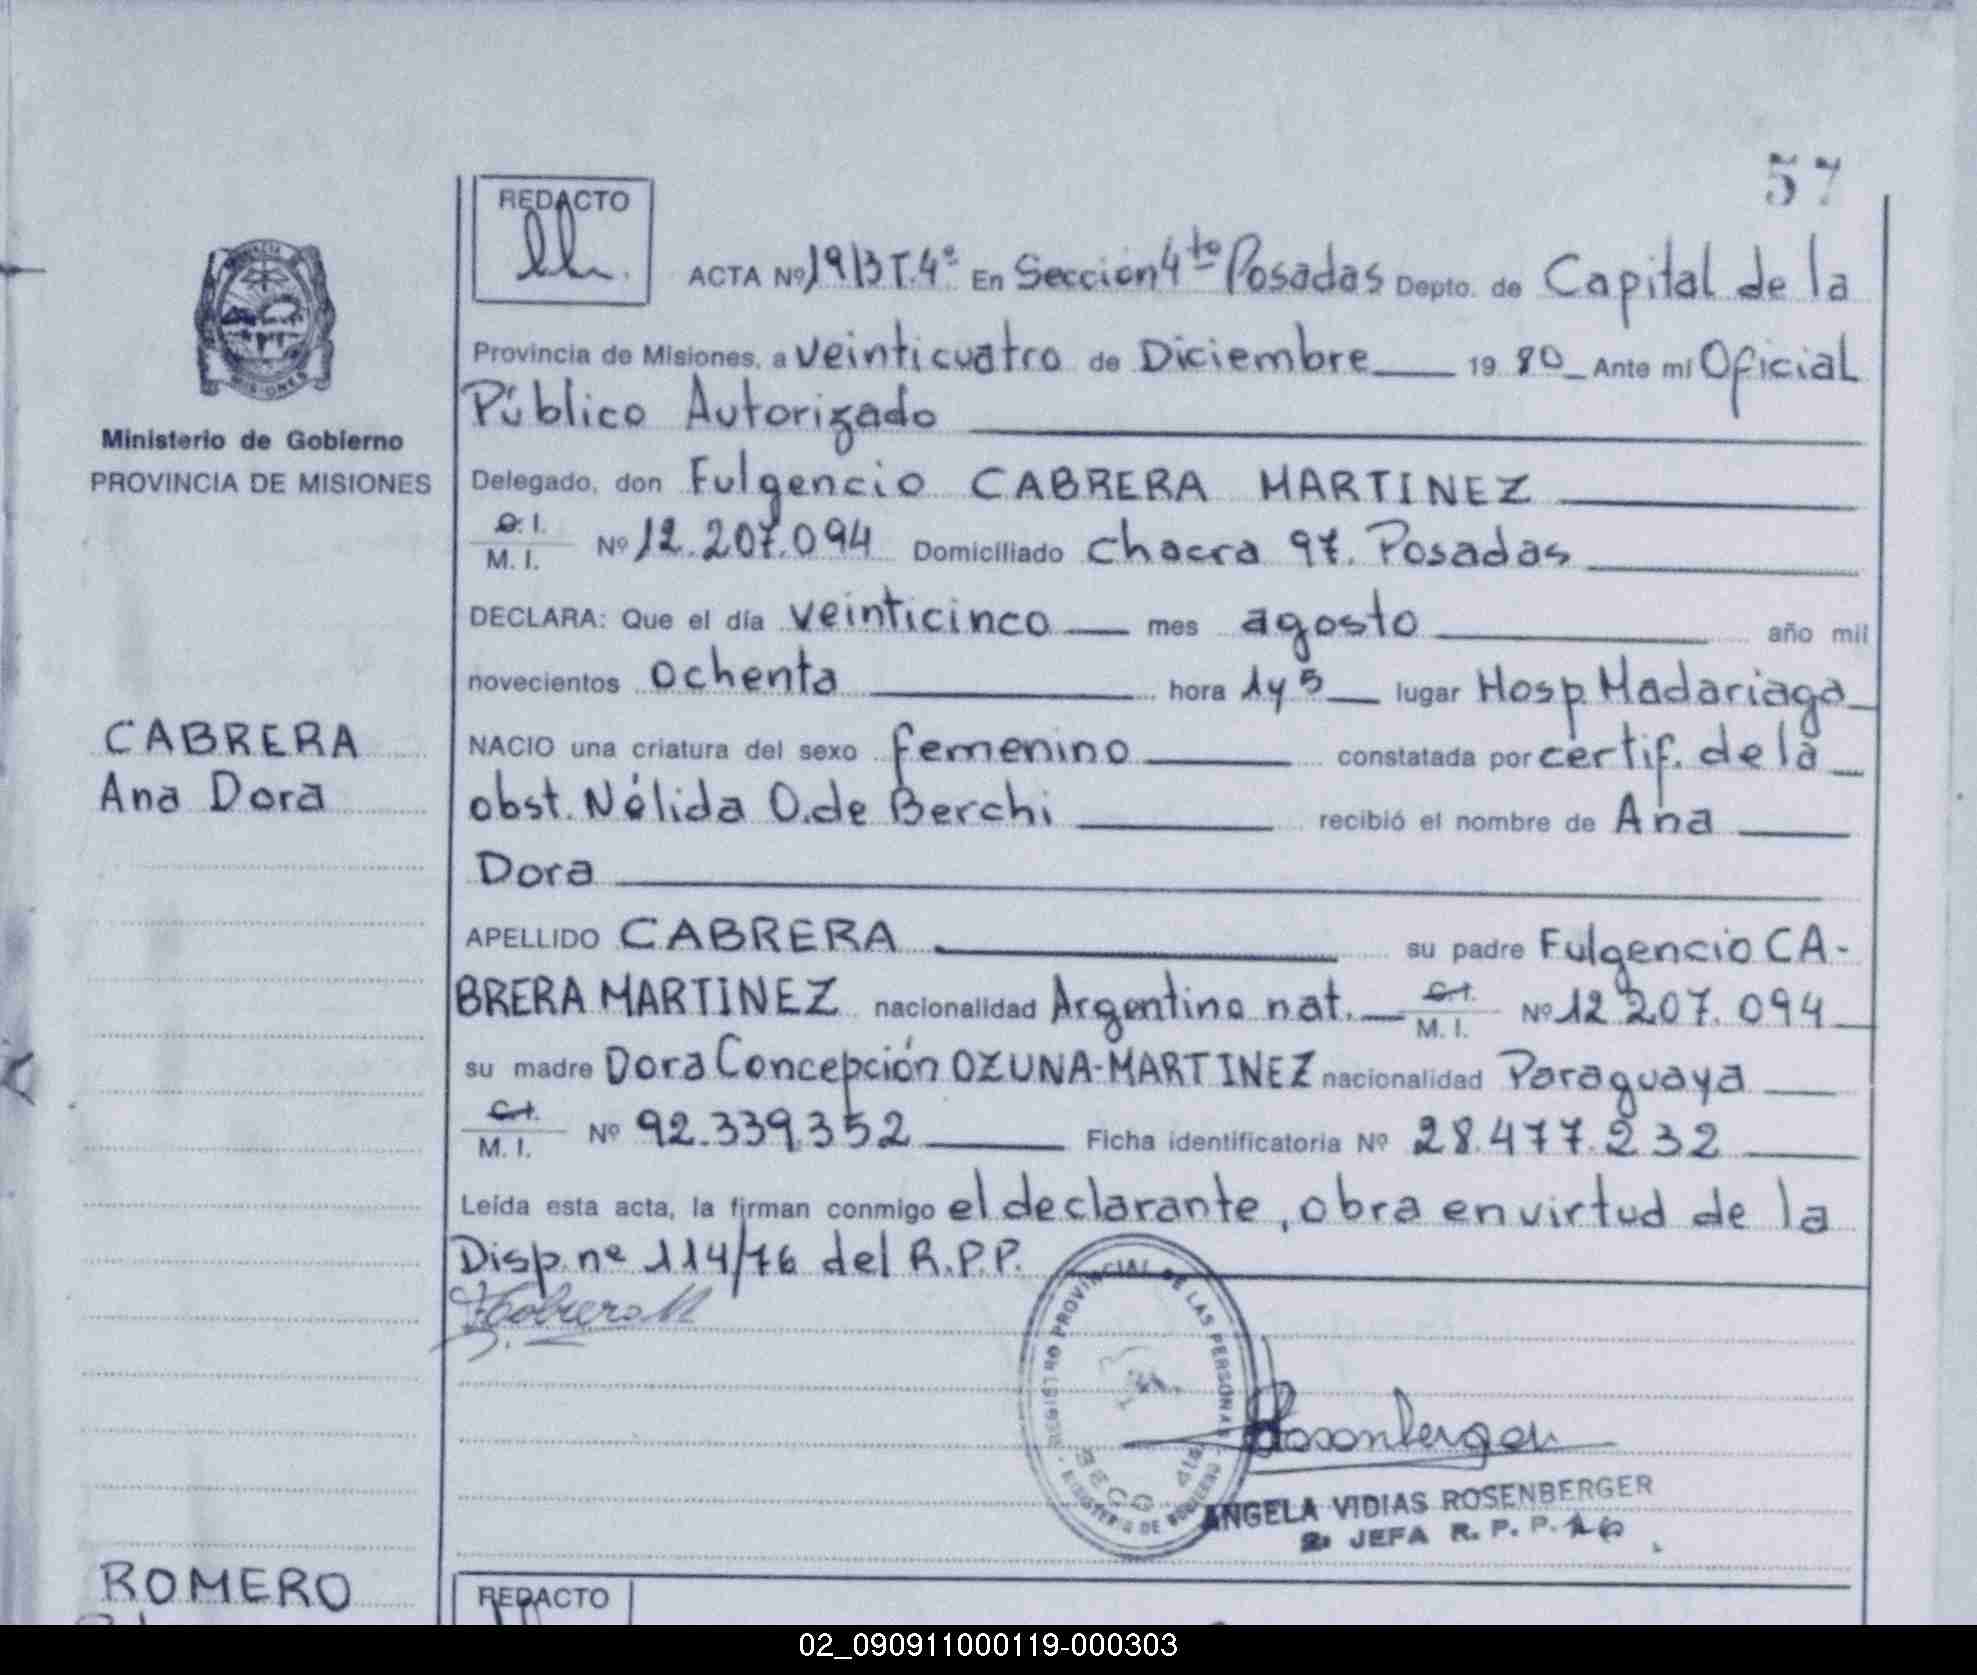 57
REDACTO
ACTA Nº 1913 T.4º En Seccion 4to Posadas Depto. de Capital de la
Provincia de Misiones, a veinticuatro de Diciembre 1980 Ante mi Oficial
Público Autorizado
Delegado, don Fulgencio CABRERA MARTINEZ
M. I. Nº 12.207.094 Domiciliado chacra 97. Posadas
DECLARA: Que el día veinticinco mes agosto año mil
novecientos ochenta hora 1 y 5 lugar Hosp Madariaga
NACIO una criatura del sexo femenino constatada por certif. de la
obst. Nélida O. de Berchi recibió el nombre de Ana
Dora
APELLIDO CABRERA su padre Fulgencio CA-
BRERA MARTINEZ nacionalidad Argentino nat. M. I. Nº 12 207.094
su madre Dora Concepción OZUNA-MARTINEZ nacionalidad Paraguaya
M. I. Nº 92.339.352 Ficha identificatoria Nº 28.477.232
Leída esta acta, la firman conmigo el declarante, obra en virtud de la
Disp. nº 114/76 del R.P.P.
REGISTRO PROVINCIAL DE LAS PERSONAS
MINISTERIO DE GOBIERNO
SECC 4ta
Rosenberger
ANGELA VIDIAS ROSENBERGER
JEFA R. P. P.
PROVINCIA
MISIONES
Ministerio de Gobierno
PROVINCIA DE MISIONES
CABRERA
Ana Dora
ROMERO
REDACTO
02_090911000119-000303